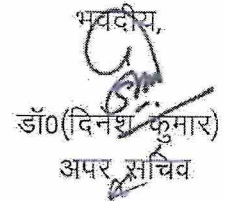 भवदीय,
डॉ0(दिनेश कुमार)
अपर सचिव